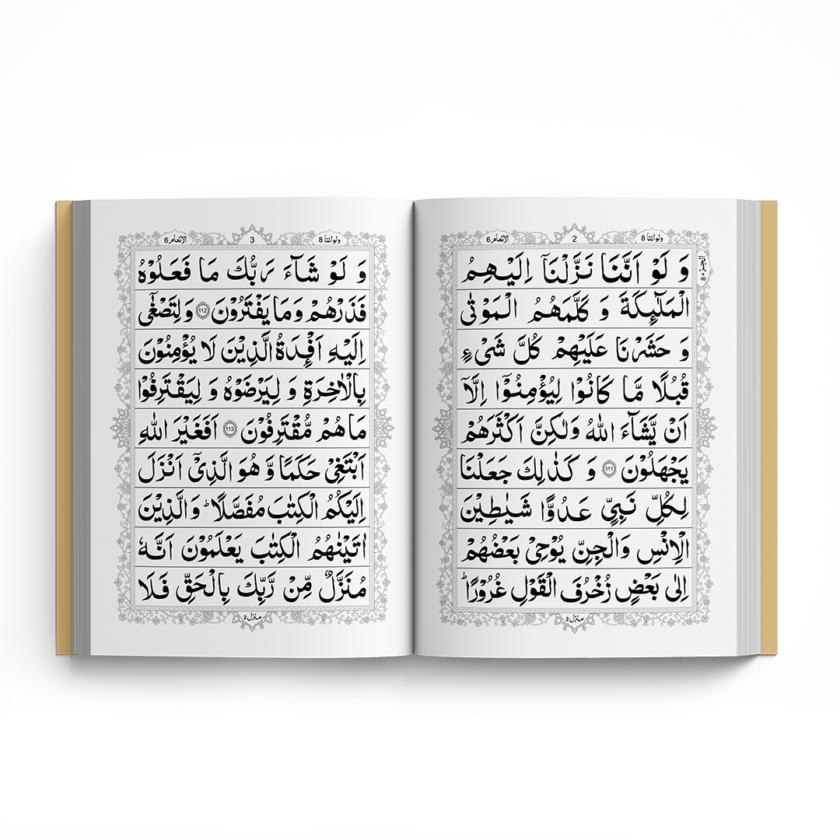 ولواننا 8 2 الانعام 6
الجزء 8
وَ لَوْ اَنَّنَا نَزَّلْنَاۤ اِلَيْهِمُ
الْمَلٰٓئِكَةَ وَ كَلَّمَهُمُ الْمَوْتٰى
وَ حَشَرْنَا عَلَيْهِمْ كُلَّ شَيْءٍ
قُبُلًا مَّا كَانُوْا لِيُؤْمِنُوْۤا اِلَّاۤ
اَنْ يَّشَآءَ اللّٰهُ وَلٰكِنَّ اَكْثَرَهُمْ
يَجْهَلُوْنَ 111 وَ كَذٰلِكَ جَعَلْنَا
لِكُلِّ نَبِيٍّ عَدُوًّا شَيٰطِيْنَ
الْاِنْسِ وَالْجِنِّ يُوْحِيْ بَعْضُهُمْ
اِلٰى بَعْضٍ زُخْرُفَ الْقَوْلِ غُرُوْرًا ؕ
منزل 2
ولواننا 8 3 الانعام 6
وَ لَوْ شَآءَ رَبُّكَ مَا فَعَلُوْهُ
فَذَرْهُمْ وَمَا يَفْتَرُوْنَ 112 وَلِتَصْغٰۤى
اِلَيْهِ اَفْـِٕدَةُ الَّذِيْنَ لَا يُؤْمِنُوْنَ
بِالْاٰخِرَةِ وَ لِيَرْضَوْهُ وَ لِيَقْتَرِفُوْا
مَا هُمْ مُّقْتَرِفُوْنَ 113 اَفَغَيْرَ اللّٰهِ
اَبْتَغِيْ حَكَمًا وَّ هُوَ الَّذِيْۤ اَنْزَلَ
اِلَيْكُمُ الْكِتٰبَ مُفَصَّلًا ؕ وَالَّذِيْنَ
اٰتَيْنٰهُمُ الْكِتٰبَ يَعْلَمُوْنَ اَنَّهٗ
مُنَزَّلٌ مِّنْ رَّبِّكَ بِالْحَقِّ فَلَا
منزل 2